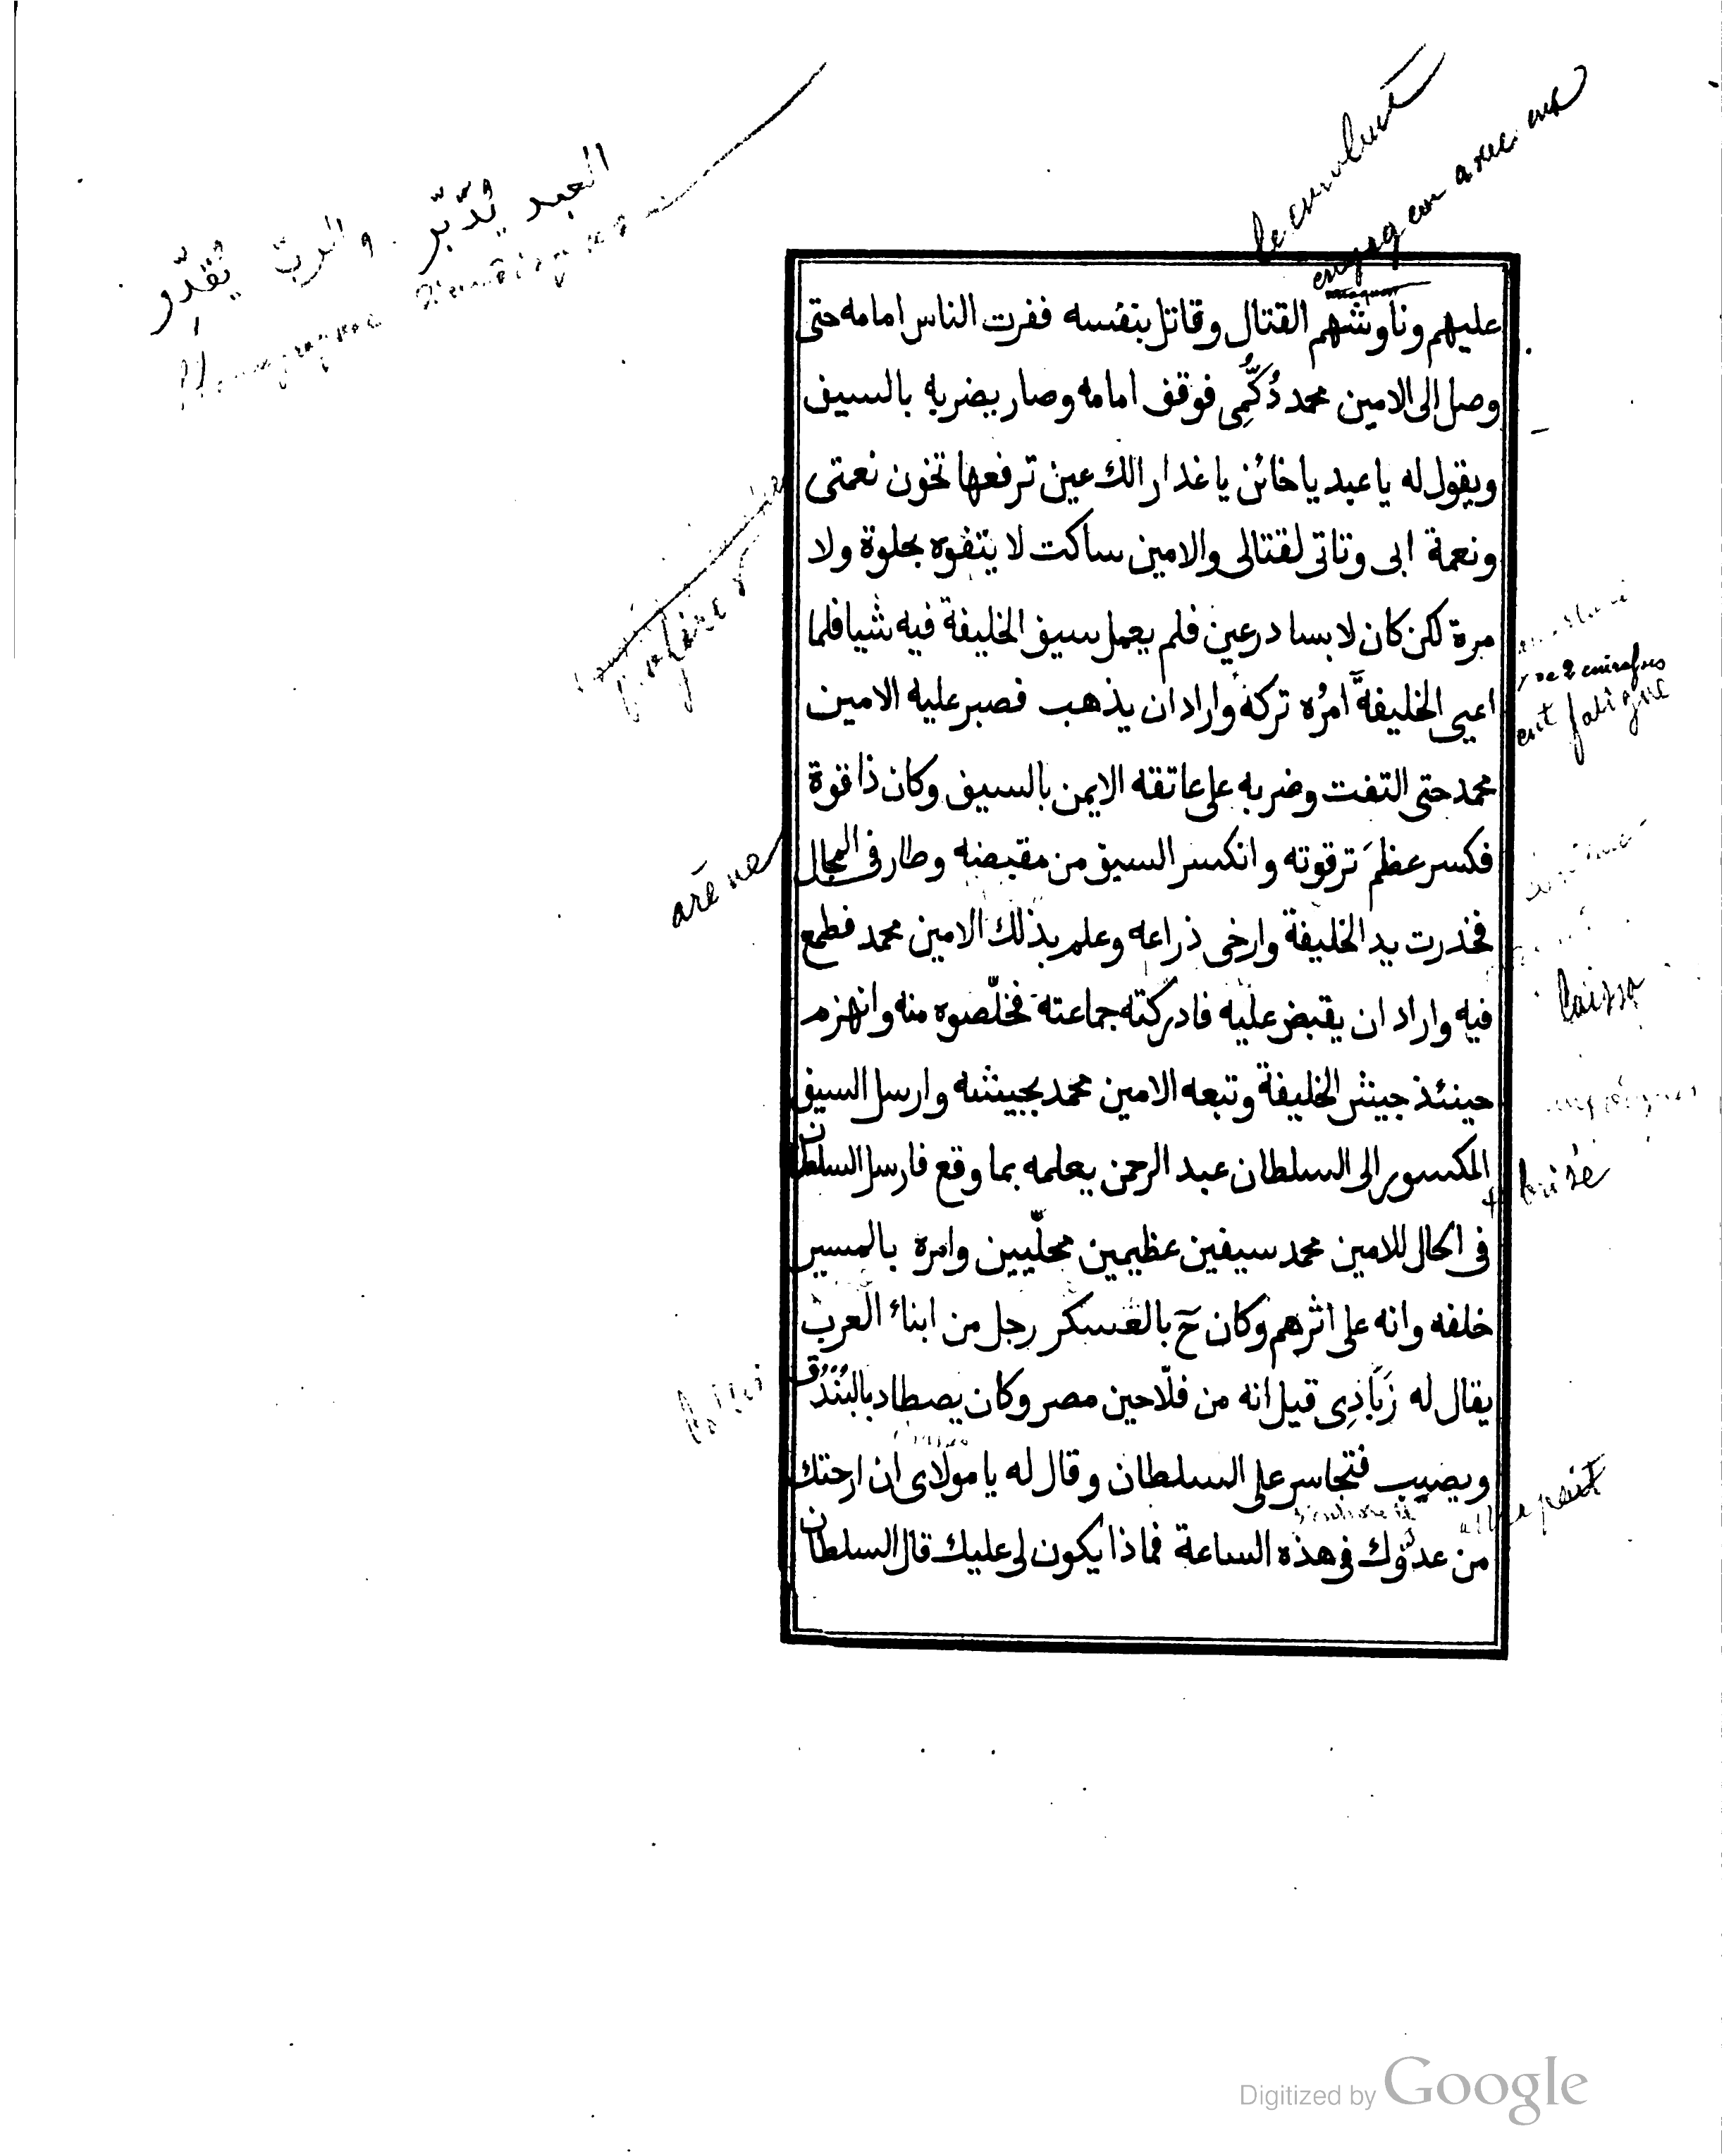 le combat
engagea avec eux
العبد يُدّبّر والربّ يُقدِّر
عليهم وناوشهم القتال وقاتل بنفسه ففرت الناس امامه حتى
وصل الى الامين محمد دُكُّمِى فوقف امامه وصار يضربه بالسيف
ويقول له يا عبد يا خائن يا غدار الك عين ترفعها تخون نعمتى
ونعمة ابى وتاتى لقتالى والامين ساكت لا يتفوه بحلوة ولا
مرة لكن كان لابسا درعين فلم يعمل سيف الخليفة فيه شيا فلما
اعيى الخليفةَ امرُه تركه واراد ان يذهب فصبر عليه الامين
محمد حتى التفت وضربه على عاتقه الايمن بالسيف وكان ذا قوة
فكسر عظمَ ترقوته وانكسر السيف من مقبضه وطار فى المجال
فخذرت يد الخليفة وارخى ذراعه وعلم بذلك الامين محمد فطمع
فيه واراد ان يقبض عليه فادركته جماعته فخلّصوه منه وانهزم
حينئذ جيش الخليفة وتبعه الامين محمد بجيشه وارسل السيف
المكسور الى السلطان عبد الرحمن يعلمه بما وقع فارسل السلطان
فى الحال للامين محمد سيفين عظيمين محلّيين وامره بالمسير
خلفه وانه على اثرهم وكان حَ بالعسكر رجل من ابناء العرب
يقال له زَبَادِى قيل انه من فلّاحين مصر وكان يصطاد بالبُنْدُق
ويصيب فتجاسر على السلطان وقال له يا مولاى ان ارحتك
من عدوّك فى هذه الساعة فماذا يكون لى عليك قال السلطان
2 cuirasses
eut fatigué
arène
laissa
brisé
Digitized by Google